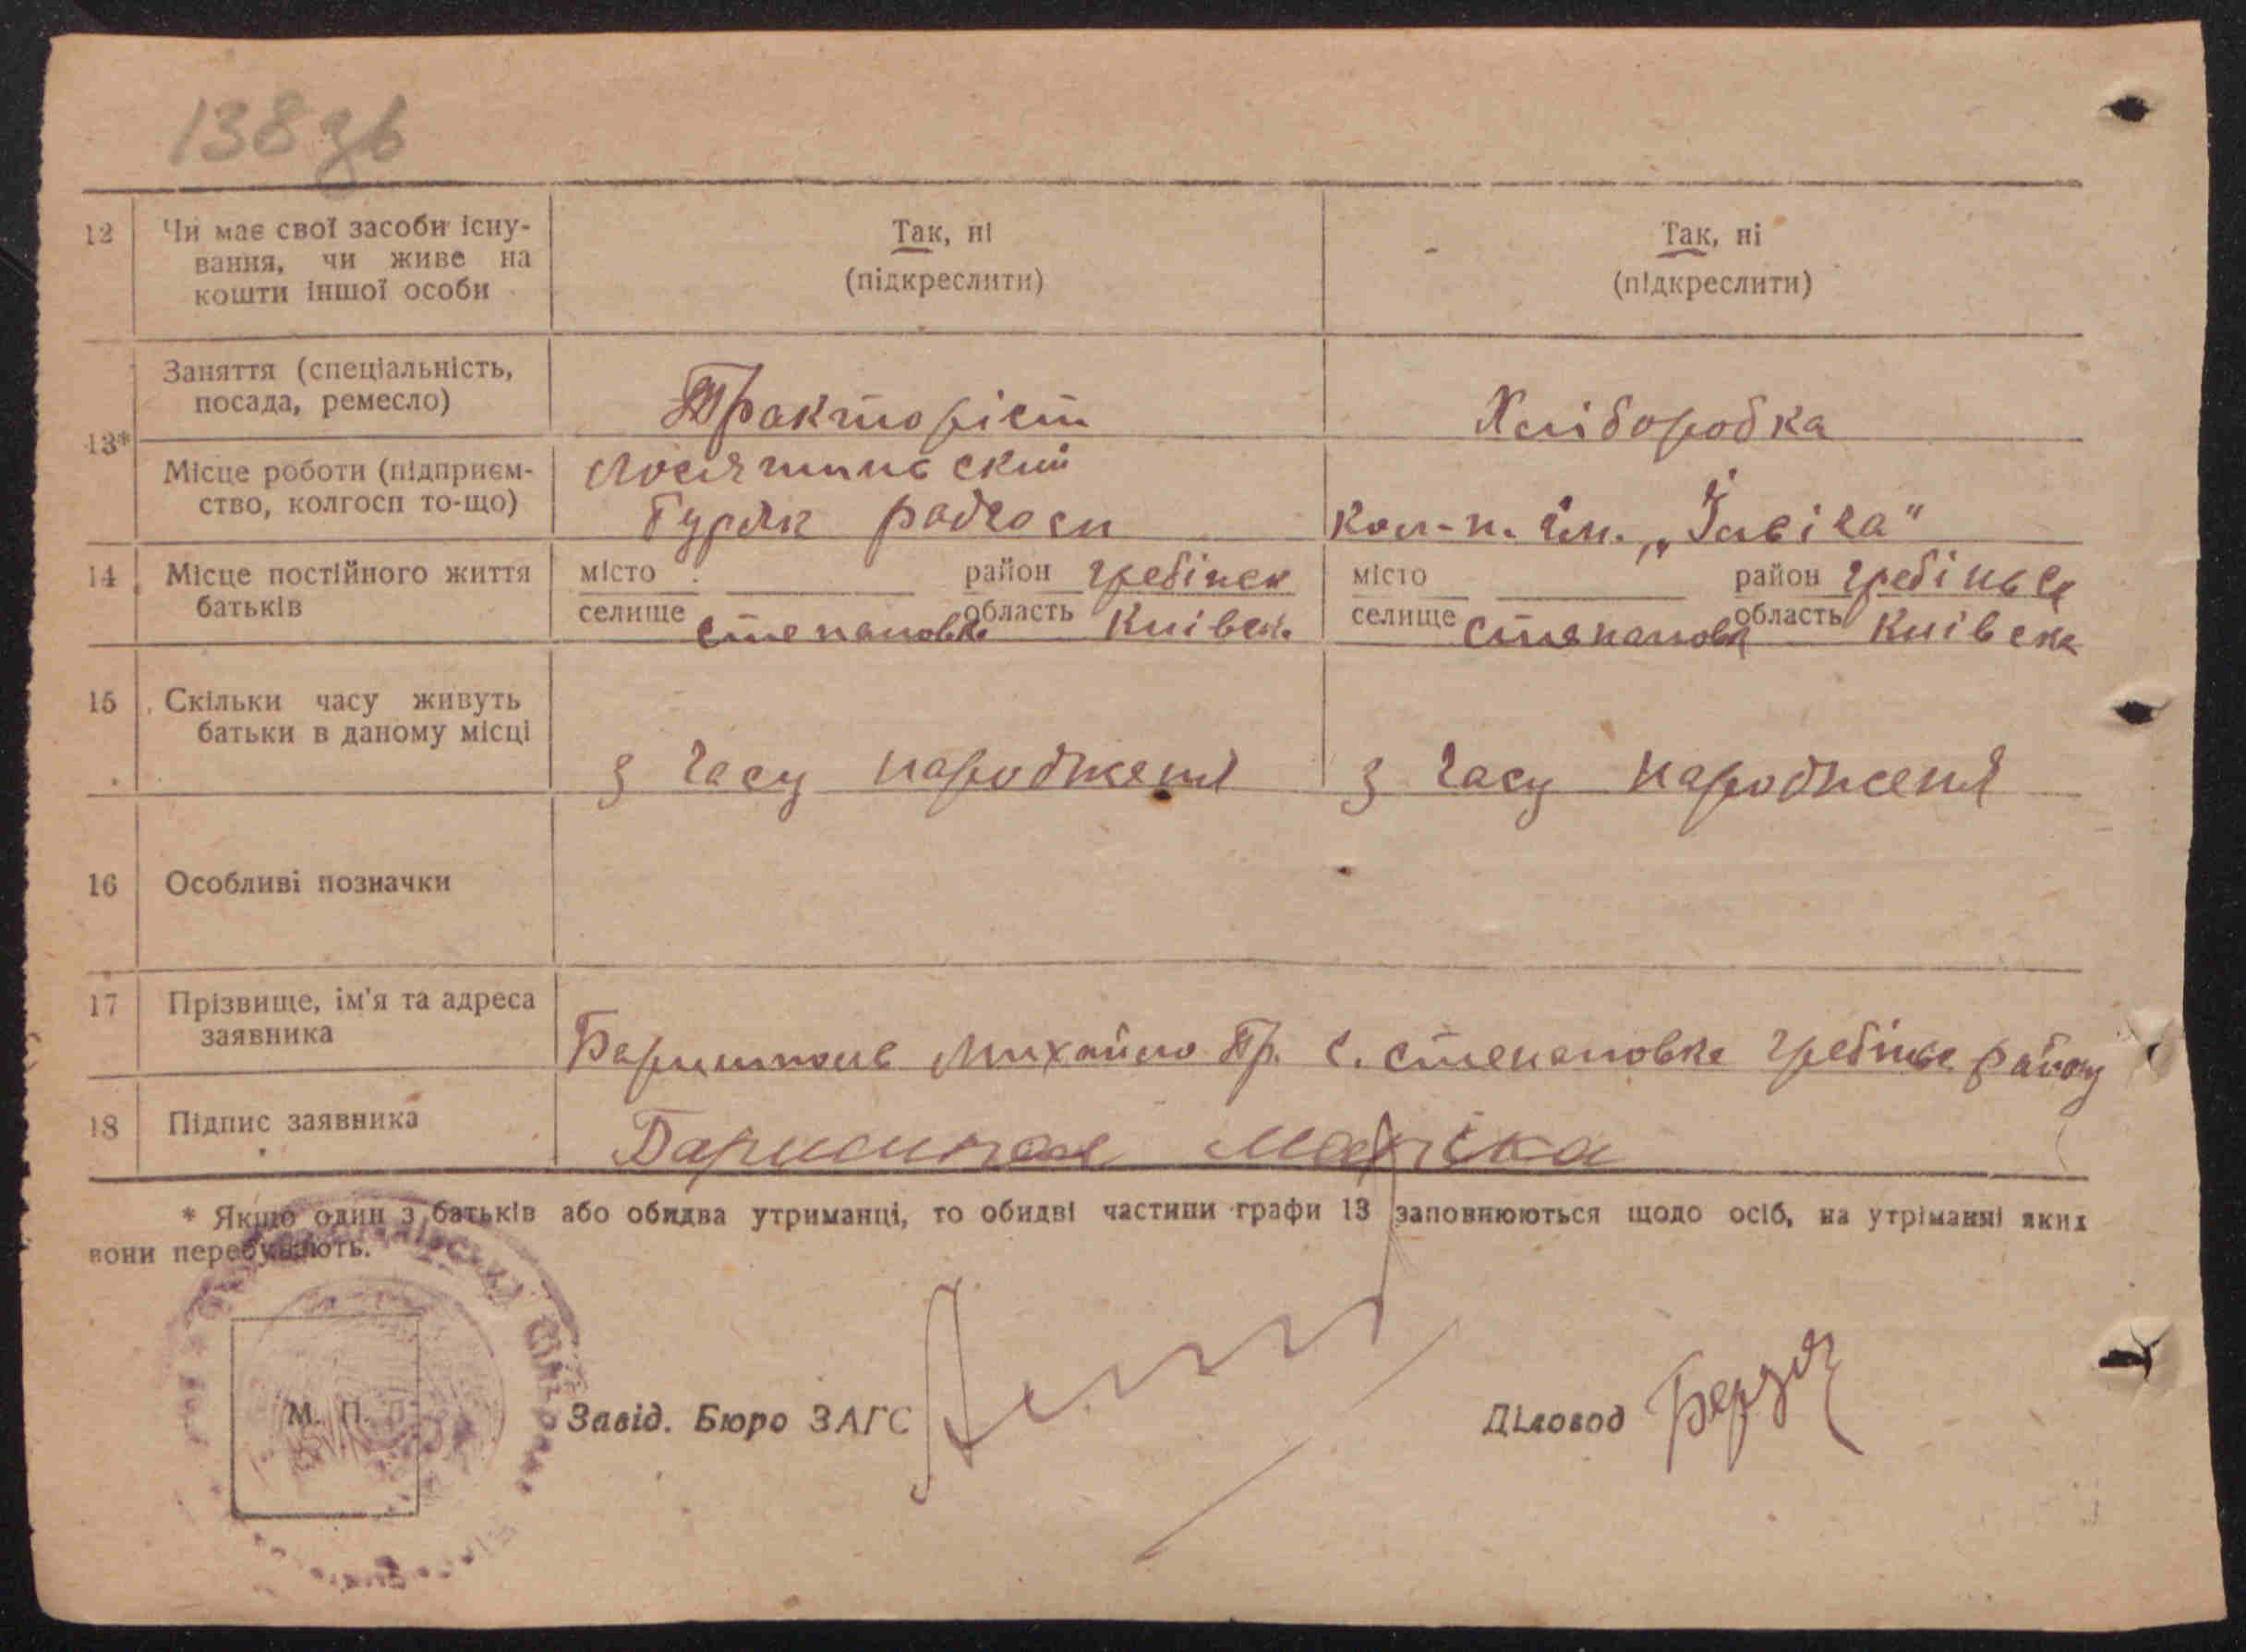 138 зв
12 Чи має свої засоби існу-
вання, чи живе на
кошти іншої особи
Так, ні
(підкреслити)
Так, ні
(підкреслити)
13*
Заняття (спеціальність,
посада, ремесло)
Тракторіст
Хліборобка
Місце роботи (підприєм-
ство, колгосп то-що)
Лосятинський
Буряк радгосп
Кол-п. ім.
14 Місце постійного життя
батьків
місто район Гребінск
селище Степановка область Київск.
місто район Гребінськ
селище Степановк область Київска
15 Скільки часу живуть
батьки в даному місці
з часу народженя
з часу народженя
16 Особливі позначки
17 Прізвище, ім'я та адреса
заявника
Баришполь Михайло Тр. с. Степановка Гребінськ району
18 Підпис заявника
Баришпол
* Якщо один з батьків або обидва утриманці, то обидві частини графи 13 заповнюються щодо осіб, на утріманні яких
вони перебувають.
М. П.
Завід. Бюро ЗАГС
Діловод